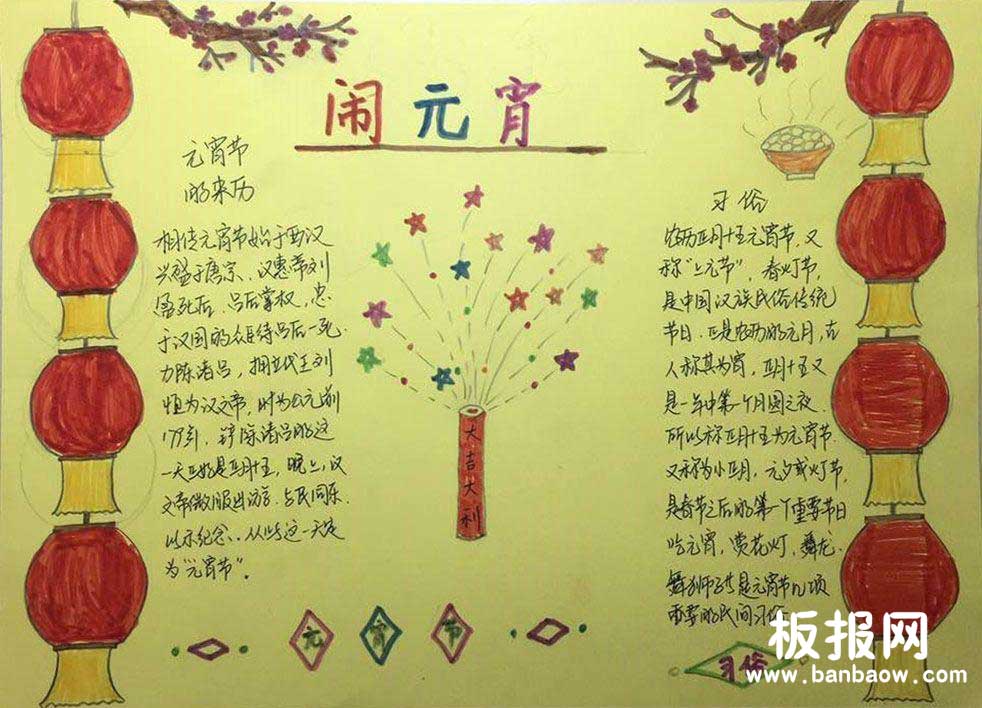 闹元宵
元宵节
的来历
相传元宵节始于西汉
兴盛于唐宗、汉惠帝刘
盈死后、吕后掌权,忠
于汉国的众臣待吕后一死.
力除诸吕,拥立代王刘
恒为汉文帝,时为公元前
179年,铲除诸吕的这
一天正好是正月十五,晚上,汉
文帝微服出访,与民同乐.
以示纪念.从此这一天定
为"元宵节"。
大吉大利
习俗
农历正月十五元宵节,又
称"上元节",春灯节,
是中国汉族民俗传统
节日.正是农历的元月,古
人称其为宵,正月十五又
是一年中第一个月圆之夜.
所以称正月十五为元宵节.
又称为小正月,元夕或灯节,
是春节之后的第一个重要节日
吃元宵,赏花灯,舞龙.
舞狮子共是元宵节几项
重要的民间习俗
元宵节
习俗
板报网
www.banbaow.com